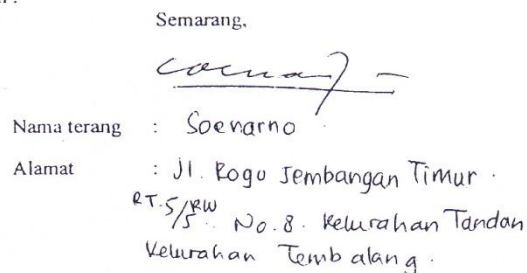 Semarang,
Nama terang : Soenarno
Alamat : Jl. Rogo Jembangan Timur.
RT.5/RW 5. No.8. Kelurahan Tandan
Kelurahan Tembalang.